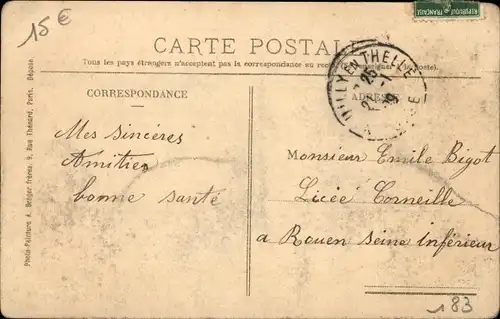 15€
REPUBLIQUE FRANÇAISE
CARTE POSTALE
Tous les pays étrangers n'acceptent pas la correspondance au
CORRESPONDANCE
ADRESSE
EN THELLE
25 -1
Mes sincères
Amitiés
bonne santé
Monsieur Emile Bigot
Licée Corneille
a Rouen Seine Inférieur
Photo-Peinture A. Bréger frères, 9, Rue Thénard, Paris. Déposé.
183